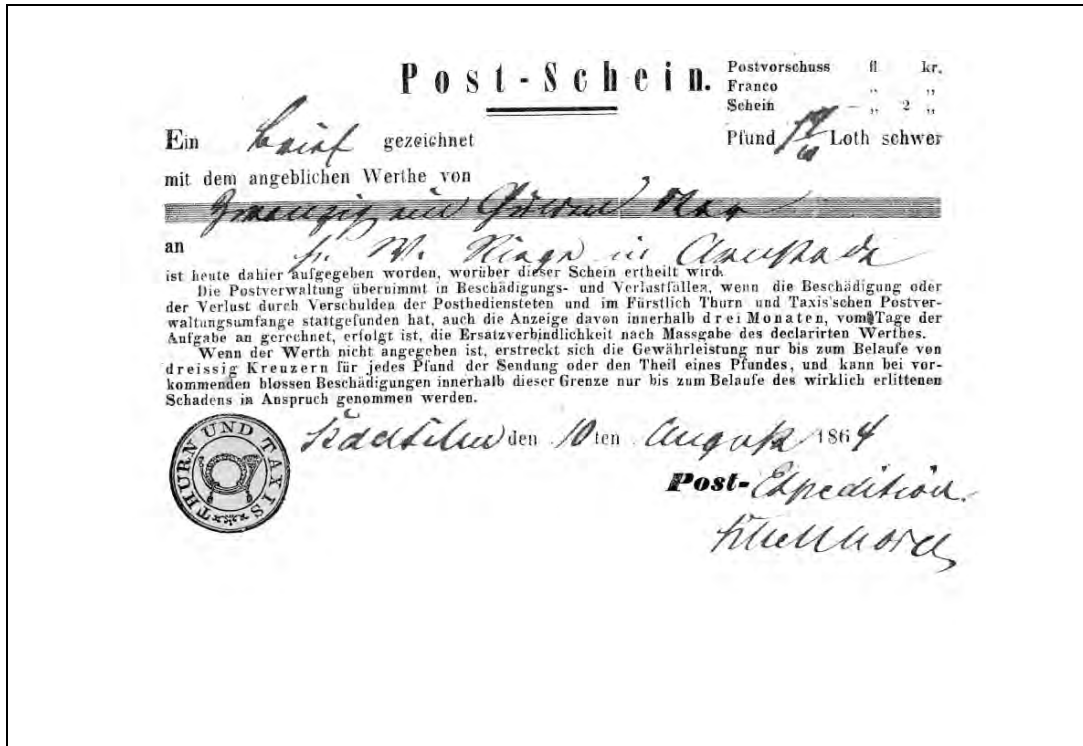 Post-Schein.
Postvorschuss fl kr.
Franco „ „
Schein — „ 2 „
Ein Brief gezeichnet
Pfund Loth schwer
mit dem angeblichen Werthe von
Zwanzig ein Gulden
an W. in Arnstadt
ist heute dahier aufgegeben worden, worüber dieser Schein ertheilt wird.
Die Postverwaltung übernimmt in Beschädigungs- und Verlustfallen, wenn die Beschädigung oder
der Verlust durch Verschulden der Postbediensteten und im Fürstlich Thurn und Taxis'schen Postver-
waltungsumfange stattgefunden hat, auch die Anzeige davon innerhalb drei Monaten, vom Tage der
Aufgabe an gerechnet, erfolgt ist, die Ersatzverbindlichkeit nach Massgabe des declarirten Werthes.
Wenn der Werth nicht angegeben ist, erstreckt sich die Gewährleistung nur bis zum Belaufe von
dreissig Kreuzern für jedes Pfund der Sendung oder den Theil eines Pfundes, und kann bei vor-
kommenden blossen Beschädigungen innerhalb dieser Grenze nur bis zum Belaufe des wirklich erlittenen
Schadens in Anspruch genommen werden.
THURN UND TAXIS
Stadtilm den 10ten August 1864
Post-Expedition.